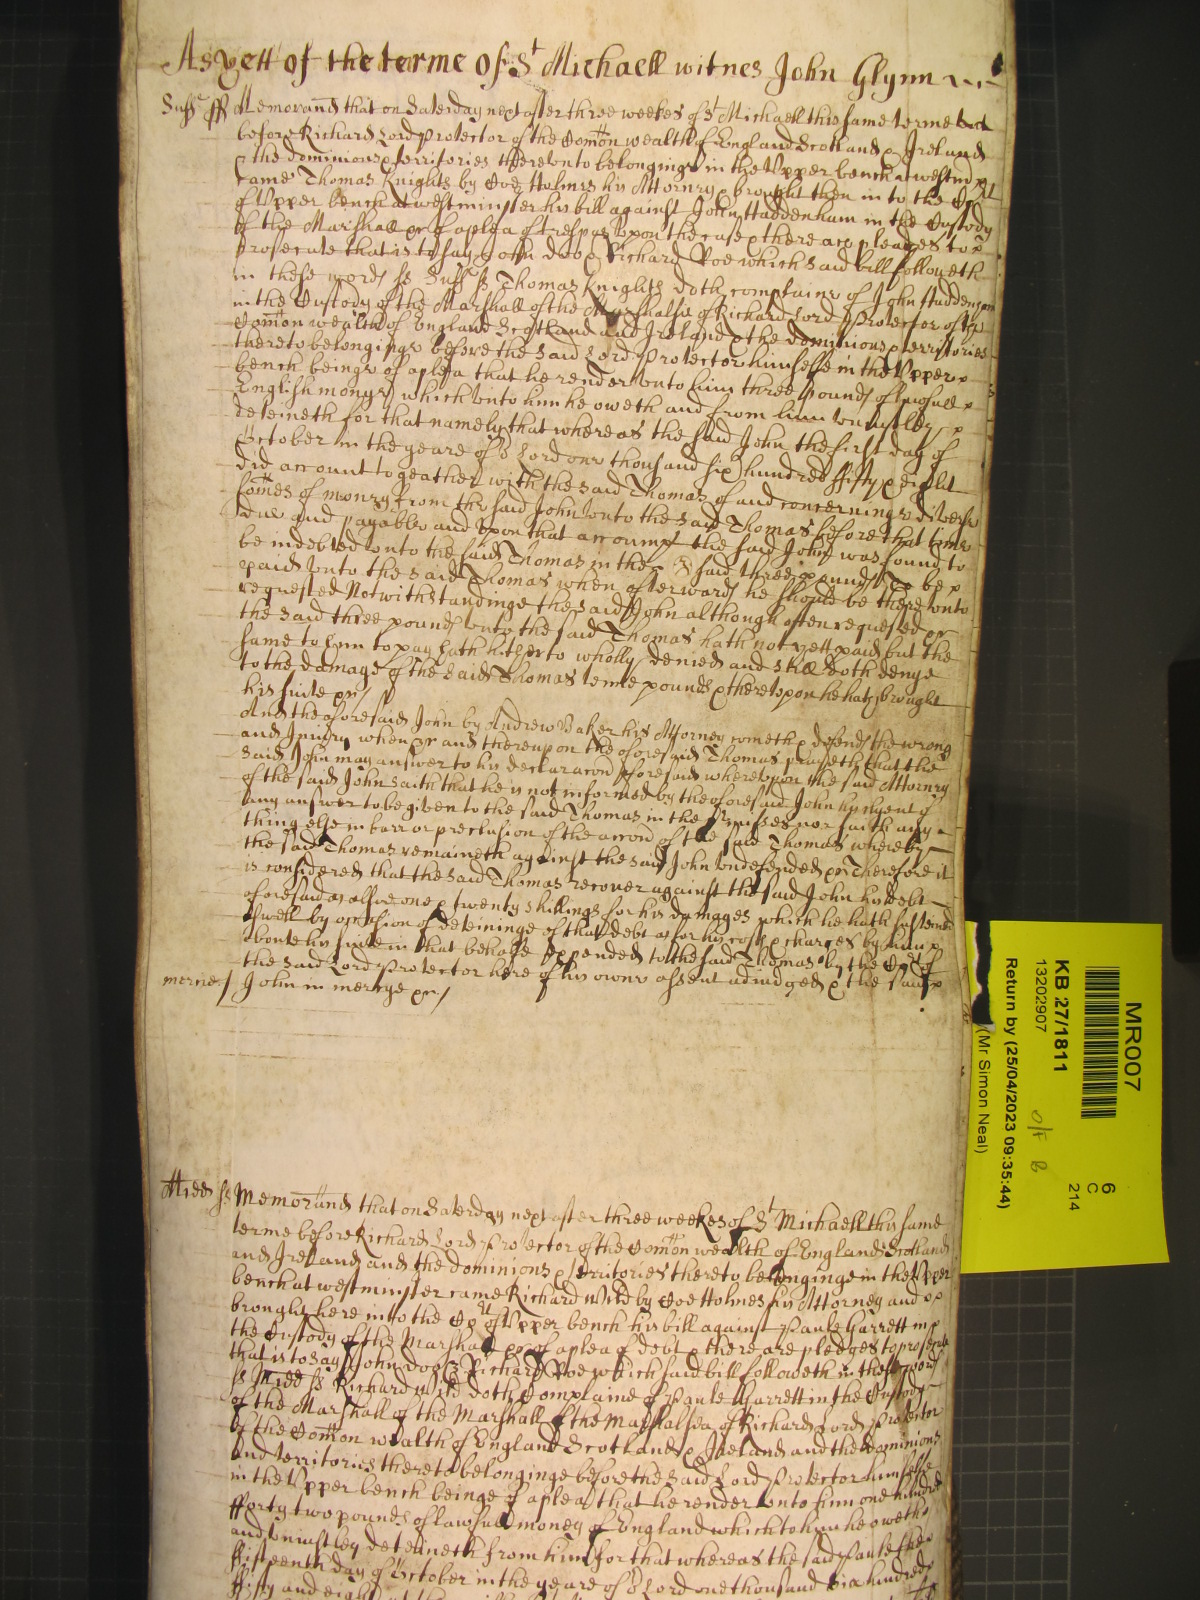 As yett of the terme of St Michaell witnes John Glynn
Suff ss Memorand that on Saterday next after three weekes of St Michaell this same terme
before Richard Lord Protector of the Comon wealth of England Scotland & Ireland
& the dominions & territories thereunto belonginge in the Upper bench at westmr
came Thomas Knights by Coe Holmes his Attorney & brought then in to the Cort
of Upper bench at westminster his bill against John Haddenham in the Custody
of the Marshall &c of a plea of trespas upon the case & there are pledges to
prosecute that is to say John doo & Richard Roe which said bill followeth
in these words ss Suff ss Thomas Knights doth complaine of John Haddenham
in the Custody of the Marshall of the Marshalsea of Richard Lord Protector of the
Comon wealth of England Scotland and Ireland & the dominions & territories
thereto belonginge before the said Lord Protector himselfe in the Upper
bench beinge of a plea that he render unto him three pounds of lawfull
English money which unto him he oweth and from him uniustley
deteineth for that namely that whereas the said John the first day of
October in the yeare of or Lord one thousand six hundred fifty & eight
did account togeather with the said Thomas of and concerninge diverse
somes of money from the said John unto the said Thomas before that time
due and payable and upon that accompt the said John was found to
be indebted unto the said Thomas in the said three pounds To be
paid unto the said Thomas when afterwards he should be there unto
requested Notwithstandinge the said John although often requested &c
the said three pounds unto the said Thomas hath not yett paid but the
same to him to pay hath hitherto wholly denied and still doth denye
to the damage of the said Thomas tenne pounds & thereupon he hath brought
his suite &c
And the aforesaid John by Andrew Baker his Attorney cometh & defends the wrong
and Iniury when &c and thereupon the aforesaid Thomas prayeth that the
said John may answer to his declaracon aforesaid whereupon the said Attorney
of the said John saith that he is not informed by the aforesaid John his clyent of
any answer to be given to the said Thomas in the premisses nor saith any
thing else in barr or preclusion of the accon of the said Thomas whereby
the said Thomas remaineth against the said John undefended &c Therefore it
is considered that the said Thomas recover against the said John his debt
aforesaid as alsoe one & twenty shillings for his damages which he hath susteined
aswell by occasion of deteininge of that debt as for his costs & charges by him
about his suite in that behalfe expended to the said Thomas by the Cort of
the said Lord Protector here of his owne assent adiudged & the said
mercie John in mercye &c
Midd ss Memorand that on Saterday next after three weekes of St Michaell this same
terme before Richard Lord Protector of the Comon wealth of England Scotland
and Ireland and the dominions & territories thereto belonginge in the Upper
bench at westminster came Richard Wild by Coe Holmes his Attorney and
brought here into the Cort of Upper bench his bill against Paule Garrett in
the Custody of the Marshall &c of a plea of debt & there are pledges to prosecute
that is to say John doo & Richard Roe which said bill followeth in these words
ss Midd ss Richard Wild doth Complaine of Paule Garrett in the Custody
of the Marshall of the Marshall of the Marshalsea of Richard Lord Protector
of the Comon wealth of England Scotland & Ireland and the dominions
and territories thereto belonginge before the said Lord Protector himselfe
in the Upper bench beinge of a plea that he render unto him one hundred
fforty two pounds of lawfull money of England which to him he oweth
and uniustley deteineth from him for that whereas the said Paule the
fifteenth day of October in the yeare of or Lord one thousand six hundred
fifty and eight
MR007
6
C
214
KB 27/1811
13202907
Return by (25/04/2023 09:35:44)
(Mr Simon Neal)
O/F B